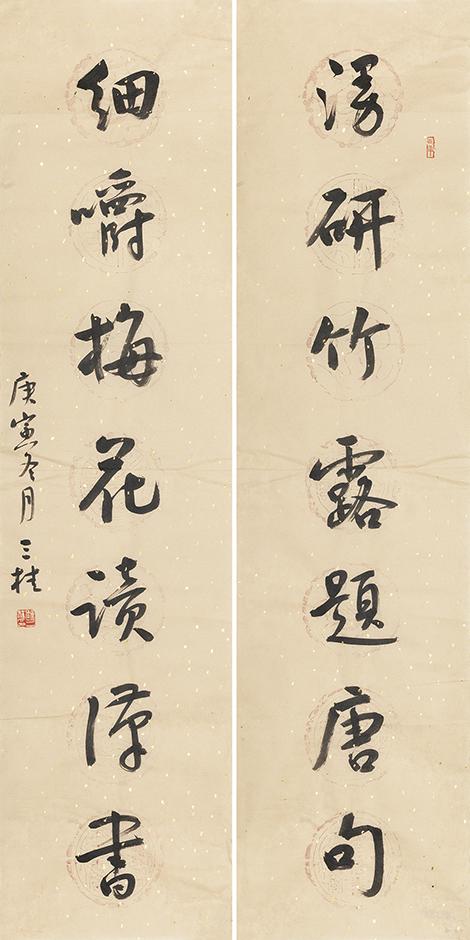 漫研竹露題唐句
細嚼梅花讀漢書
庚寅冬月 三桂